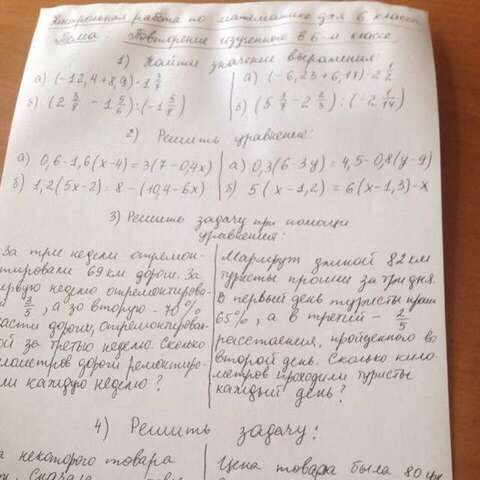 Контрольная работа по математике для 6 класса
Тема: Повторение изученного в 6-м классе
1) Найти значение выражения:
а) (-12,4+8,9)·1 3/7
б) (2 3/8 - 1 5/6):(-1 5/8)
а) (-6,23+6,11)·2 1/2
б) (5 3/7 - 2 2/3):(-2 1/14)
2) Решить уравнение:
а) 0,6-1,6(x-4)=3(7-0,4x)
б) 1,2(5x-2)=8-(10,4-6x)
а) 0,3(6-3y)=4,5-0,8(y-9)
б) 5(x-1,2)=6(x-1,3)-x
3) Решить задачу при помощи
уравнения:
За три недели отремон-
тировали 69 км дороги. За
первую неделю отремонтирова-
3/5, а во вторую - 70%
части дороги, отремонтирован-
ой за третью неделю. Сколько
лометров дороги ремонтиро-
ли каждую неделю?
Маршрут длиной 82 км
туристы прошли за три дня.
В первый день туристы прошли
65%, а в третий - 2/5
расстояния, пройденного во
второй день. Сколько кило-
метров проходили туристы
каждый день?
4) Решить задачу:
а некоторого товара
Цена товара была 80 грн